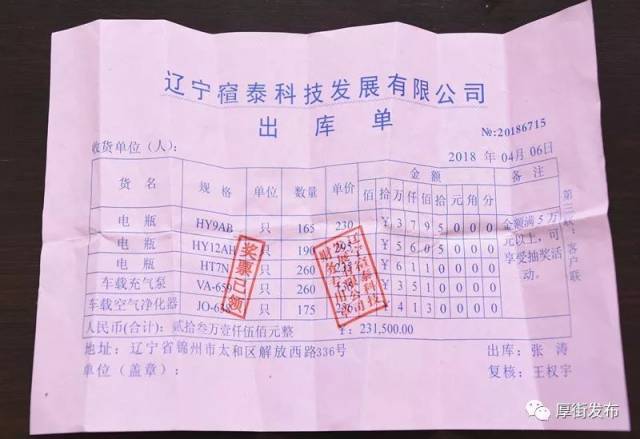 辽宁 泰科技发展有限公司
出 库 单
№:20186715
收货单位(人):
2018 年 04月 06日
货 名 规 格 单位 数量 单价 金 额 备 注
佰 拾 万 仟 佰 拾 元 角 分
电 瓶 HY9AB 只 165 230 ¥ 3 7 9 5 0 0 0
电 瓶 HY12AH 只 190 295 ¥ 5 6 0 5 0 0 0
电 瓶 HT7N 只 260 ¥ 6 1 1 0 0 0 0
车载充气泵 VA-659 只 260 ¥ 3 5 1 0 0 0 0
车载空气净化器 只 175 ¥ 4 1 3 0 0 0 0
金额满5万
元以上,可
享受抽奖活
动。
第三联:客户联
奖票已领
人民币(合计): 贰拾叁万壹仟伍佰元整 ¥: 231,500.00
地址: 辽宁省锦州市太和区解放西路336号 出库: 张 涛
单位(盖章): 复核: 王权宇
厚街发布